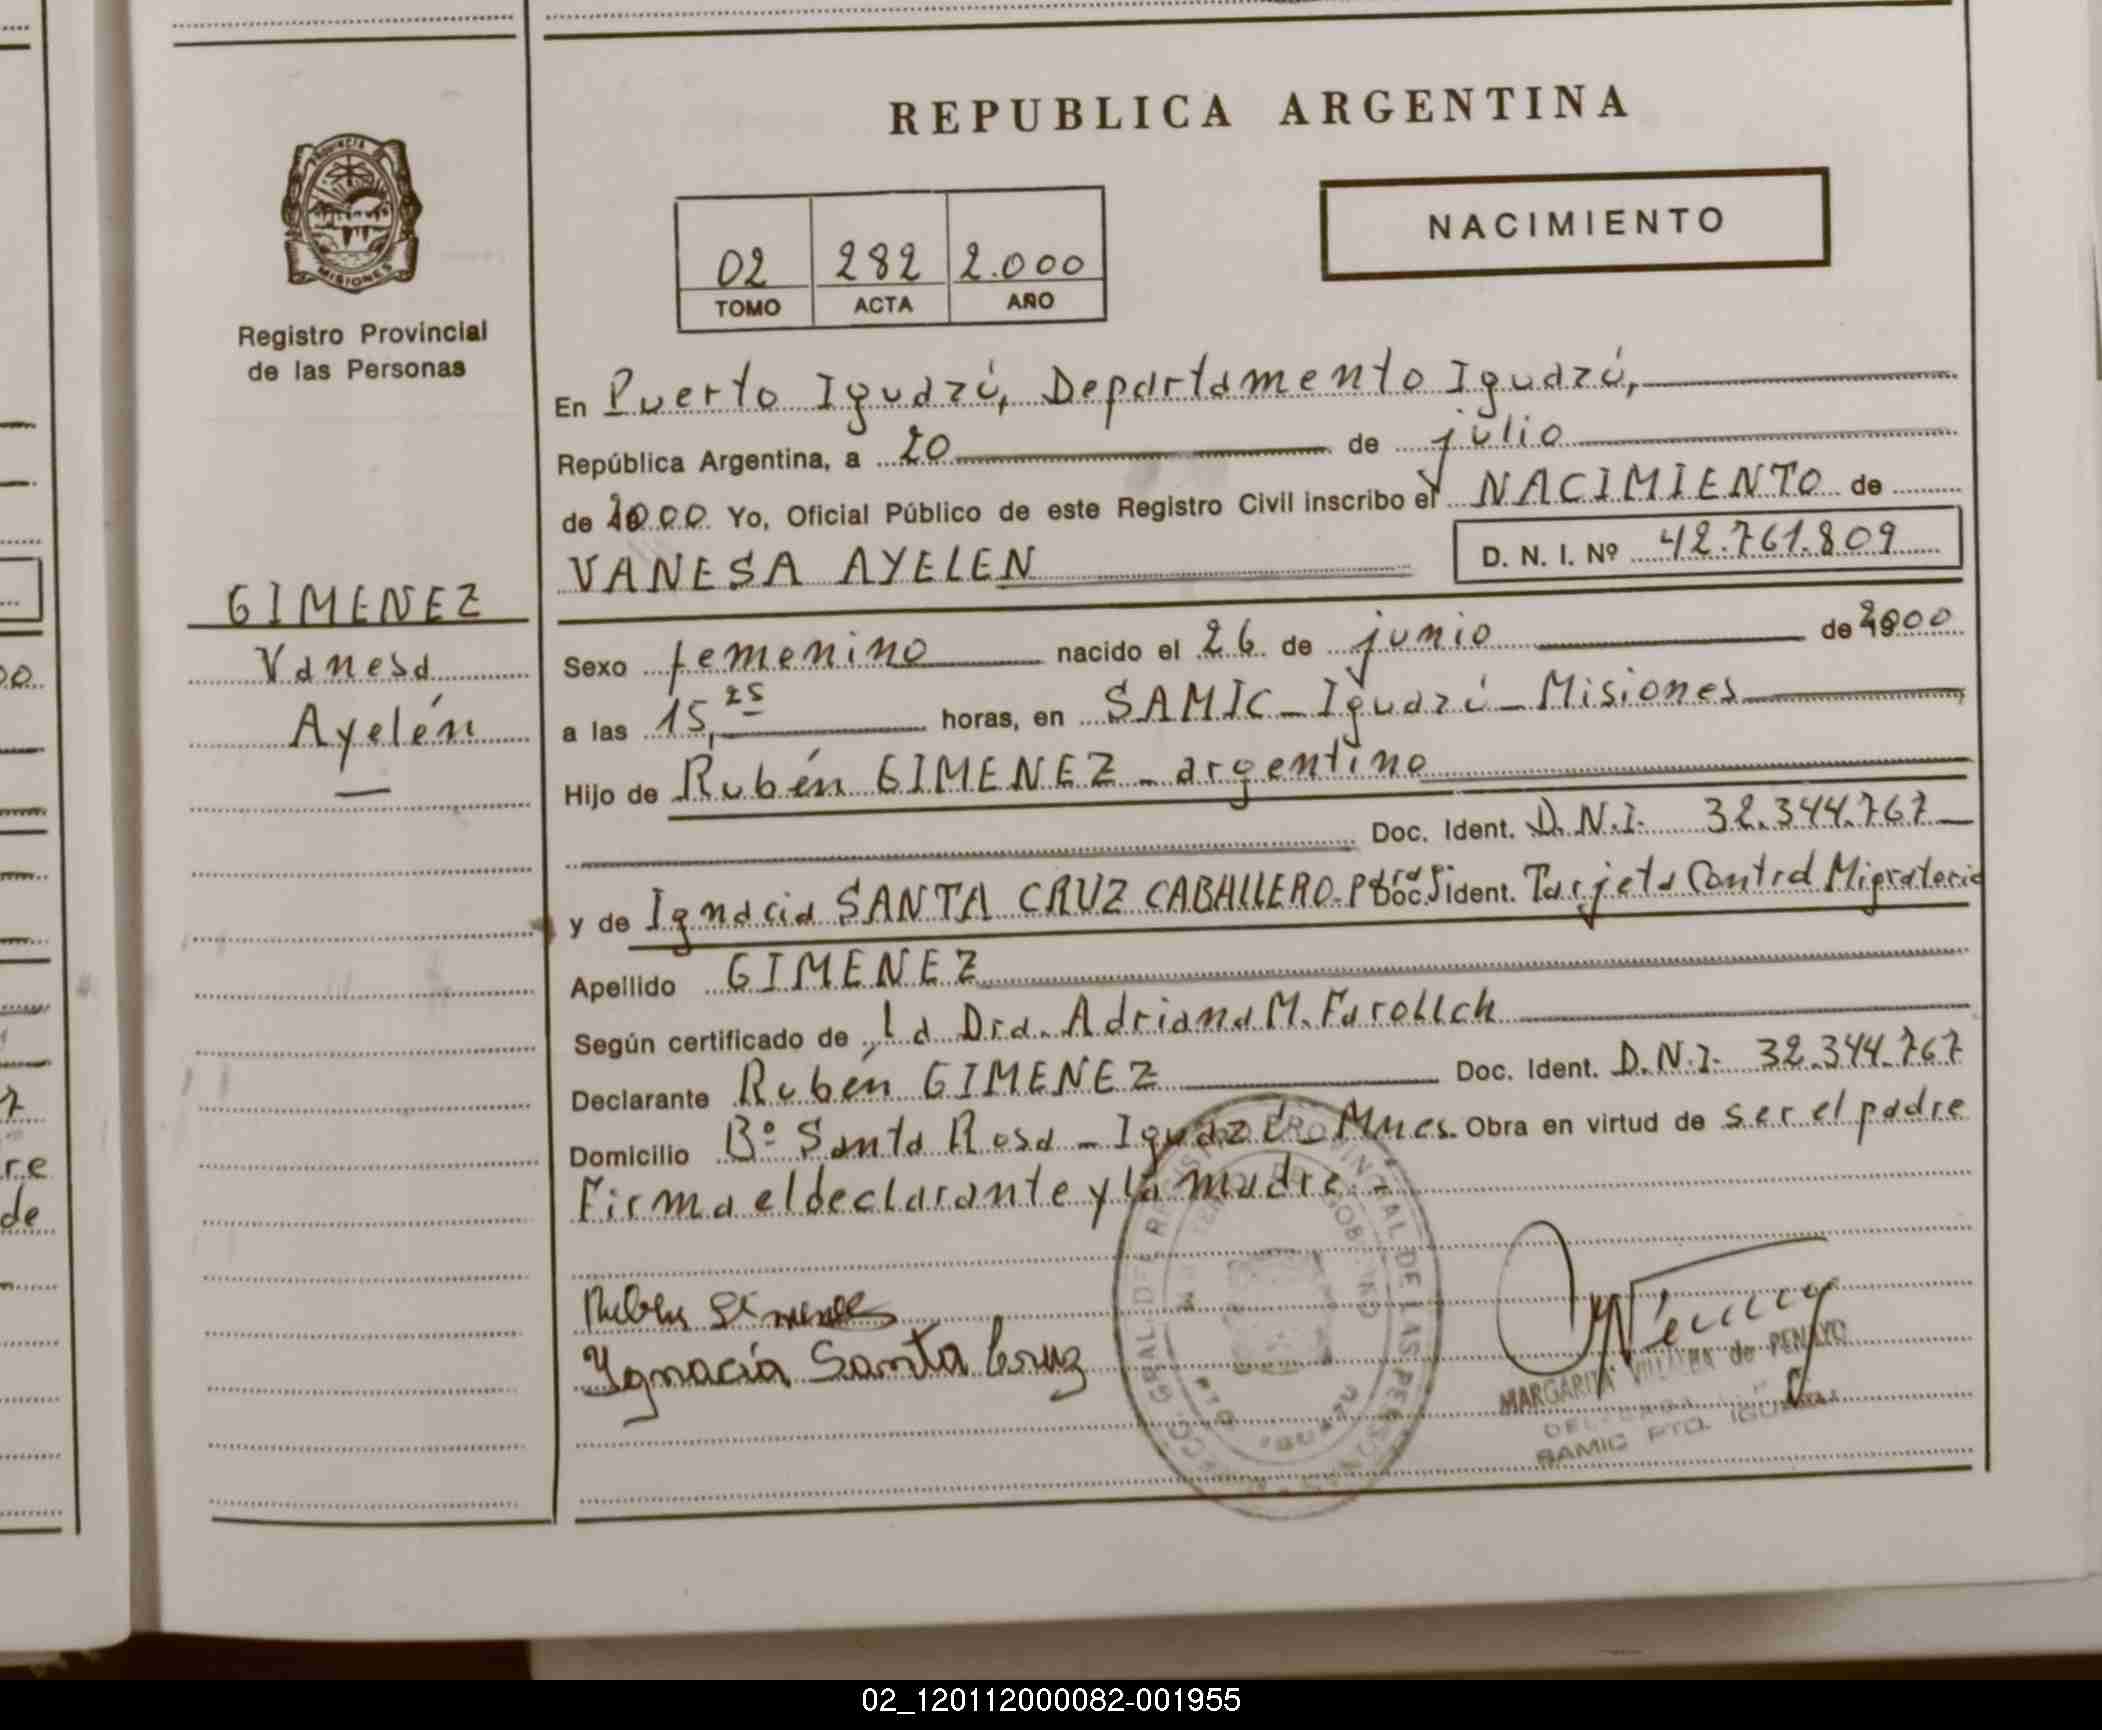 REPUBLICA ARGENTINA
NACIMIENTO
02 282 2.000
TOMO ACTA AÑO
PROVINCIA DE
MISIONES
Registro Provincial
de las Personas
GIMENEZ
Vanesa
Ayelén
En Puerto Iguazú, Departamento Iguazú,
República Argentina, a 20 de julio
de 2000 Yo, Oficial Público de este Registro Civil inscribo el NACIMIENTO de
VANESA AYELEN D. N. I. Nº 42.761.809
Sexo femenino nacido el 26 de junio de 2000
a las 15,25 horas, en SAMIC - Iguazú - Misiones
Hijo de Rubén GIMENEZ - argentino
Doc. Ident. D.N.I. 32.344.767
y de Ignacia SANTA CRUZ CABALLERO Doc. Ident. Tarjeta Control Migratorio
Apellido GIMENEZ
Según certificado de la Dra. Adriana M.
Declarante Rubén GIMENEZ Doc. Ident. D.N.I. 32.344.767
Domicilio Bº Santa Rosa - Iguazú - Mnes. Obra en virtud de ser el padre
Firma el declarante y la madre.-
Ruben Gimenez
Ygnacia Santa Cruz
MARGARITA VILLALBA de PENAYO
DELEGADA
SAMIC PTO. IGUAZU
REGISTRO PROVINCIAL DE LAS PERSONAS
02_120112000082-001955